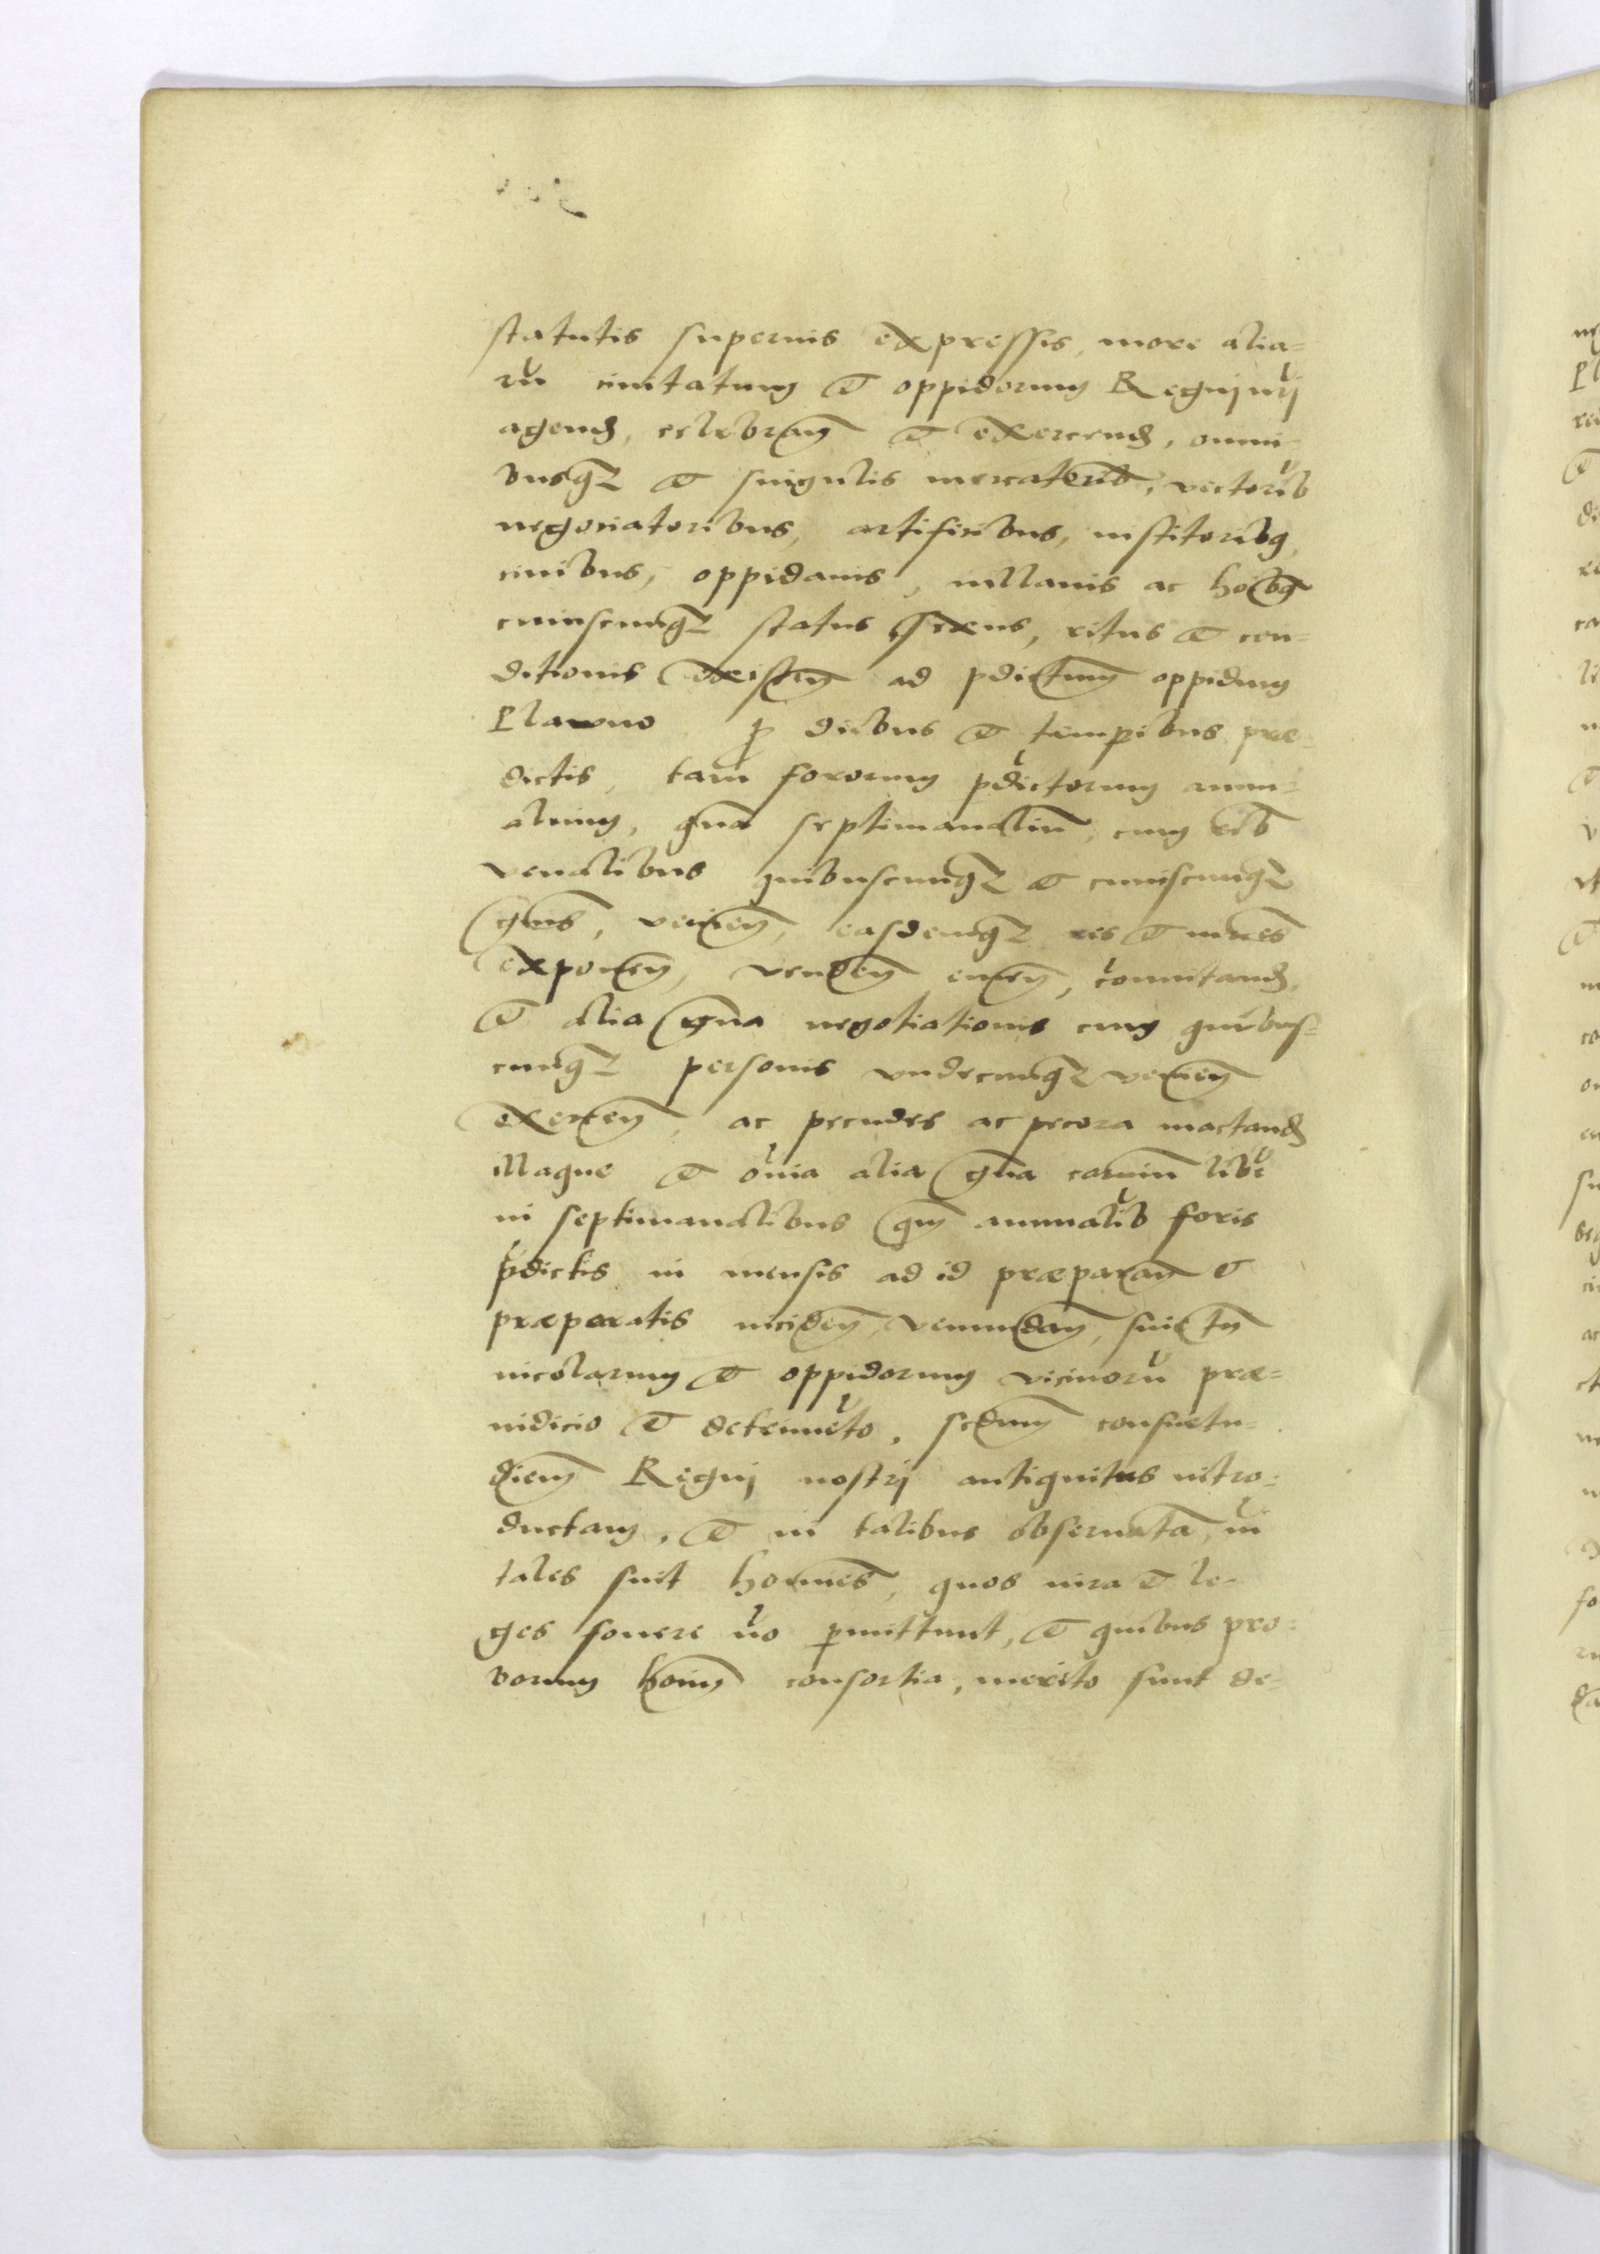 statutis superius expressis, more alia=
rū ciuitatum et oppidorum Regnj nrj
agend, celebran et exercend, omni
busq et singulis mercatorib, vectorib
negociatoribus, artificibus, institoribq,
ciuibus, oppidanis, uillanis ac hoibq
cuiuscunq status sexus, ritus et con=
ditionis existen ad pdictum oppidum
Plawno p diebus et temporibus prae=
dictis, tam fororum pdictorum annu=
alium, qua septimanaliū, cum reb
venalibus quibuscunq et cuiuscunq
gnis, venien, easdemq res et mrces
exponen, venden, emen, comutand,
et alia gna negotiationis cum quibus=
cunq personis vndecunq venien
exercen, ac pecudes ac pecora mactand
illaque et omia alia gna carniu libe
in septimanalibus qm annualib foris
pdictis in mensis ad id praeparan et
praeparatis inciden, venundan, sine tn
uicolarum et oppidorum vicinorū prae=
iudicio et detrimeto, scdum consuetu=
diem Regnj nostrj antiquitus intro=
ductam, et in talibus obseruata, ni
tales sint homines, quos iura et le=
ges fouere no pmittunt, et quibus pro=
borum hoim consortia, merito sunt de=